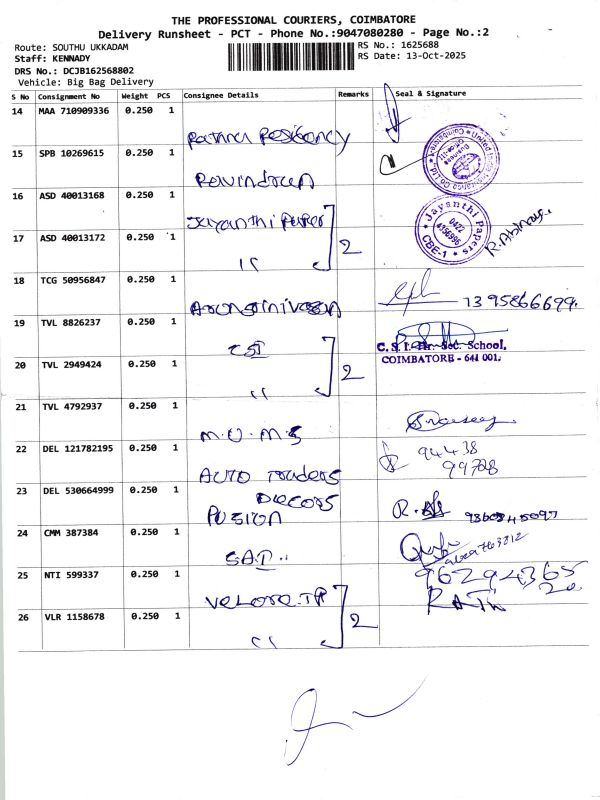 THE PROFESSIONAL COURIERS, COIMBATORE
Delivery Runsheet - PCT - Phone No.:9047080280 - Page No.:2
Route: SOUTHU UKKADAM
RS No.: 1625688
Staff: KENNADY
RS Date: 13-Oct-2025
DRS No.: DCJB162568802
Vehicle: Big Bag Delivery
S No Consignment No Weight PCS Consignee Details Remarks Seal & Signature
14 MAA 710909336 0.250 1
Rathna Residency
15 SPB 10269615 0.250 1
Ravindran
United India Insurance Co. Ltd. Coimbatore
16 ASD 40013168 0.250 1
Jayanthi Paper
Jayanthi Papers
0422
CBE-1
17 ASD 40013172 0.250 1
2
"
18 TCG 50956847 0.250 1
Aronsrinivasan
19 TVL 8826237 0.250 1
CSI
C.S.I. Hr. Sec. School,
COIMBATORE - 641 001.
20 TVL 2949424 0.250 1
2
"
21 TVL 4792937 0.250 1
M.U.M.S
22 DEL 121782195 0.250 1
94438
99728
AUTO Traders
23 DEL 530664999 0.250 1
DECORS
FUSION
24 CMM 387384 0.250 1
SAI..
25 NTI 599337 0.250 1
96294365
20
VELORE.TP
26 VLR 1158678 0.250 1
2
"